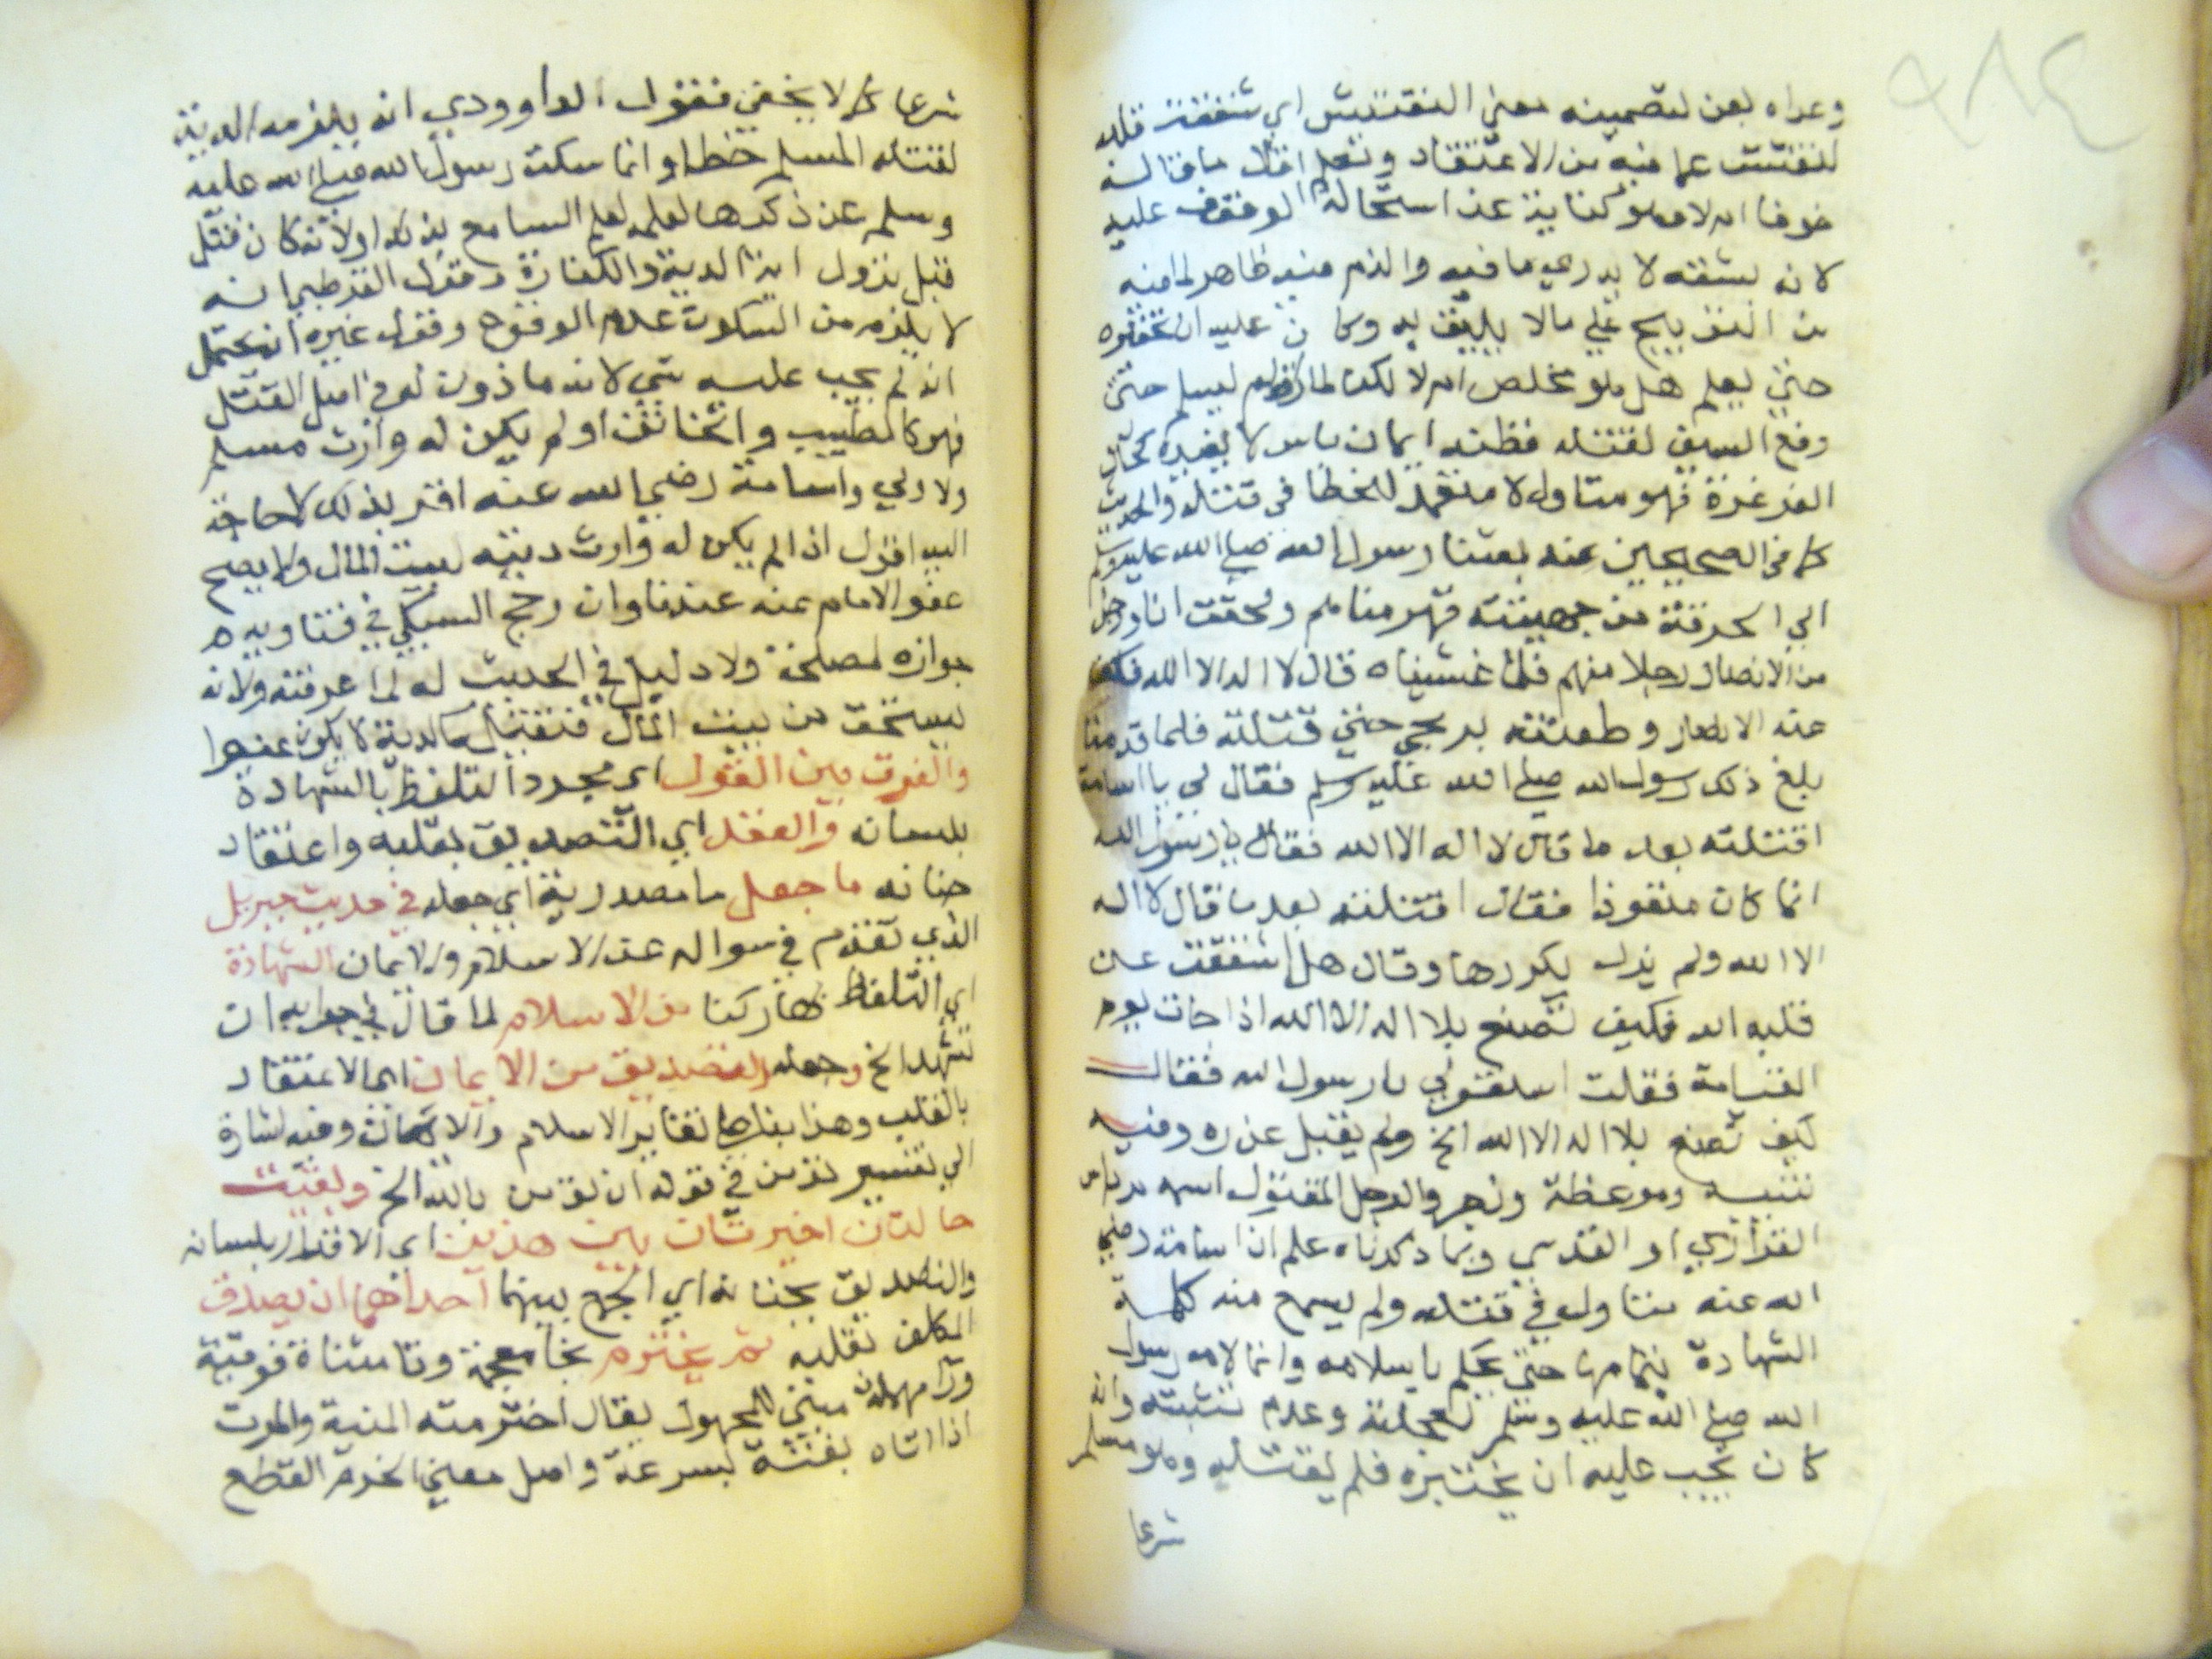 وعداه بعن لتضمينه معنى التفتيش اي شققت قلبه
لتفتش عما فيه من الاعتقاد وتعلم اقال ما قاله
خوفا ام لا وهو كناية عن استحالة الوقوف عليه
لانه بشقه لا يدري ما فيه والذم منه ظاهر لما فيه
من التوبيخ على مالا يليق به وكان عليه ان
حتى يعلم هل هو مخلص ام لا لكنه لما لم يسلم حتى
رفع السيف لقتله فظنه ايمان ياس لا يفيده كحال
الغرغرة فهو متاول لا متعمد للخطا في قتله والحديث
كما في الصحيحين عنه بعثنا رسول الله صلى الله عليه وسلم
الى الحرقة من جهينة فهزمناهم ولحقت انا ورجل
من الانصار رجلا منهم فلما غشيناه قال لا اله الا الله فكف
عنه الانصار وطعنته برمحي حتى قتلته فلما قدمنا
بلغ ذلك رسول الله صلى الله عليه وسلم فقال لي يا اسامة
اقتلته بعد ما قال لا اله الا الله فقال يا رسول الله
انما كان متعوذا فقال اقتلته بعد ما قال لا اله
الا الله ولم يزل يكررها وقال هل شققت عن
قلبه الله فكيف تصنع بلا اله الا الله اذا جات يوم
القيامة فقلت استغفر لي يا رسول الله فقال
كيف تصنع بلا اله الا الله الخ ولم يقبل عذره وفيه
تنبيه وموعظة وزجر والرجل المقتول اسمه مرداس
الفزاري او الفدكي وبما ذكرناه علم ان اسامة رضي
الله عنه متاول في قتله ولم يسمع منه كلمة
الشهادة بتمامها حتى يحكم باسلامه وانما لامه رسول
الله صلى الله عليه وسلم لعجلته وعدم تثبته وانه
كان يجب عليه ان يختبره فلم يقتله وهو مسلم
شرعا
شرعا كما لا يخفى فقول الداوودي انه يلزمه الدية
لقتله المسلم خطا وانما سكت رسول الله صلى الله عليه
وسلم عن ذكرها لعلمه لعلم السامع بذلك او لانه كان قتل
قبل نزول اية الدية والكفارة وقول القرطبي انه
لا يلزم من السكوت عدم الوقوع وقول غيره انه يحتمل
انه لم يجب عليه شي لانه ماذون له في اصل القتل
فهو كالطبيب والخاتن او لم يكن له وارث مسلم
ولا ولي واسامة رضي الله عنه اقر بذلك لا حاجة
اليه اقول اذا لم يكن له وارث ديته لبيت المال ولا يصح
عفو الامام عنه عندنا وان رجح السبكي في فتاويه
جوازه لمصلحة ولا دليل في الحديث له لما عرفته ولانه
يستحق من بيت المال فتقبل كالدية لا يكون عفوا
والفرق بين القول اي مجرد التلفظ بالشهادة
بلسانه والعقد اي التصديق بقلبه واعتقاد
جنانه ما جعل ما مصدرية اي جعله في حديث جبريل
الذي تقدم في سواله عن الاسلام والايمان الشهادة
اي التلفظ بها ركنا من الاسلام لما قال في جوابه ان
تشهد الخ وجعله التصديق من الايمان اي الاعتقاد
بالقلب وهذا بناء على تغاير الاسلام والايمان وفيه اشارة
الى تفسير تومن في قوله ان تومن بالله الخ وبقيت
حالتان اخيرتان بين هذين اي الاقرار بلسانه
والتصديق بجنانه اي الجمع بينهما احداهما ان يصدق
المكلف بقلبه ثم يخترم بخا معجمة وتا مثناة فوقية
ورا مهملة مبني للمجهول يقال اخترمته المنية والموت
اذا اتاه بغتة بسرعة واصل معنى الخرم القطع